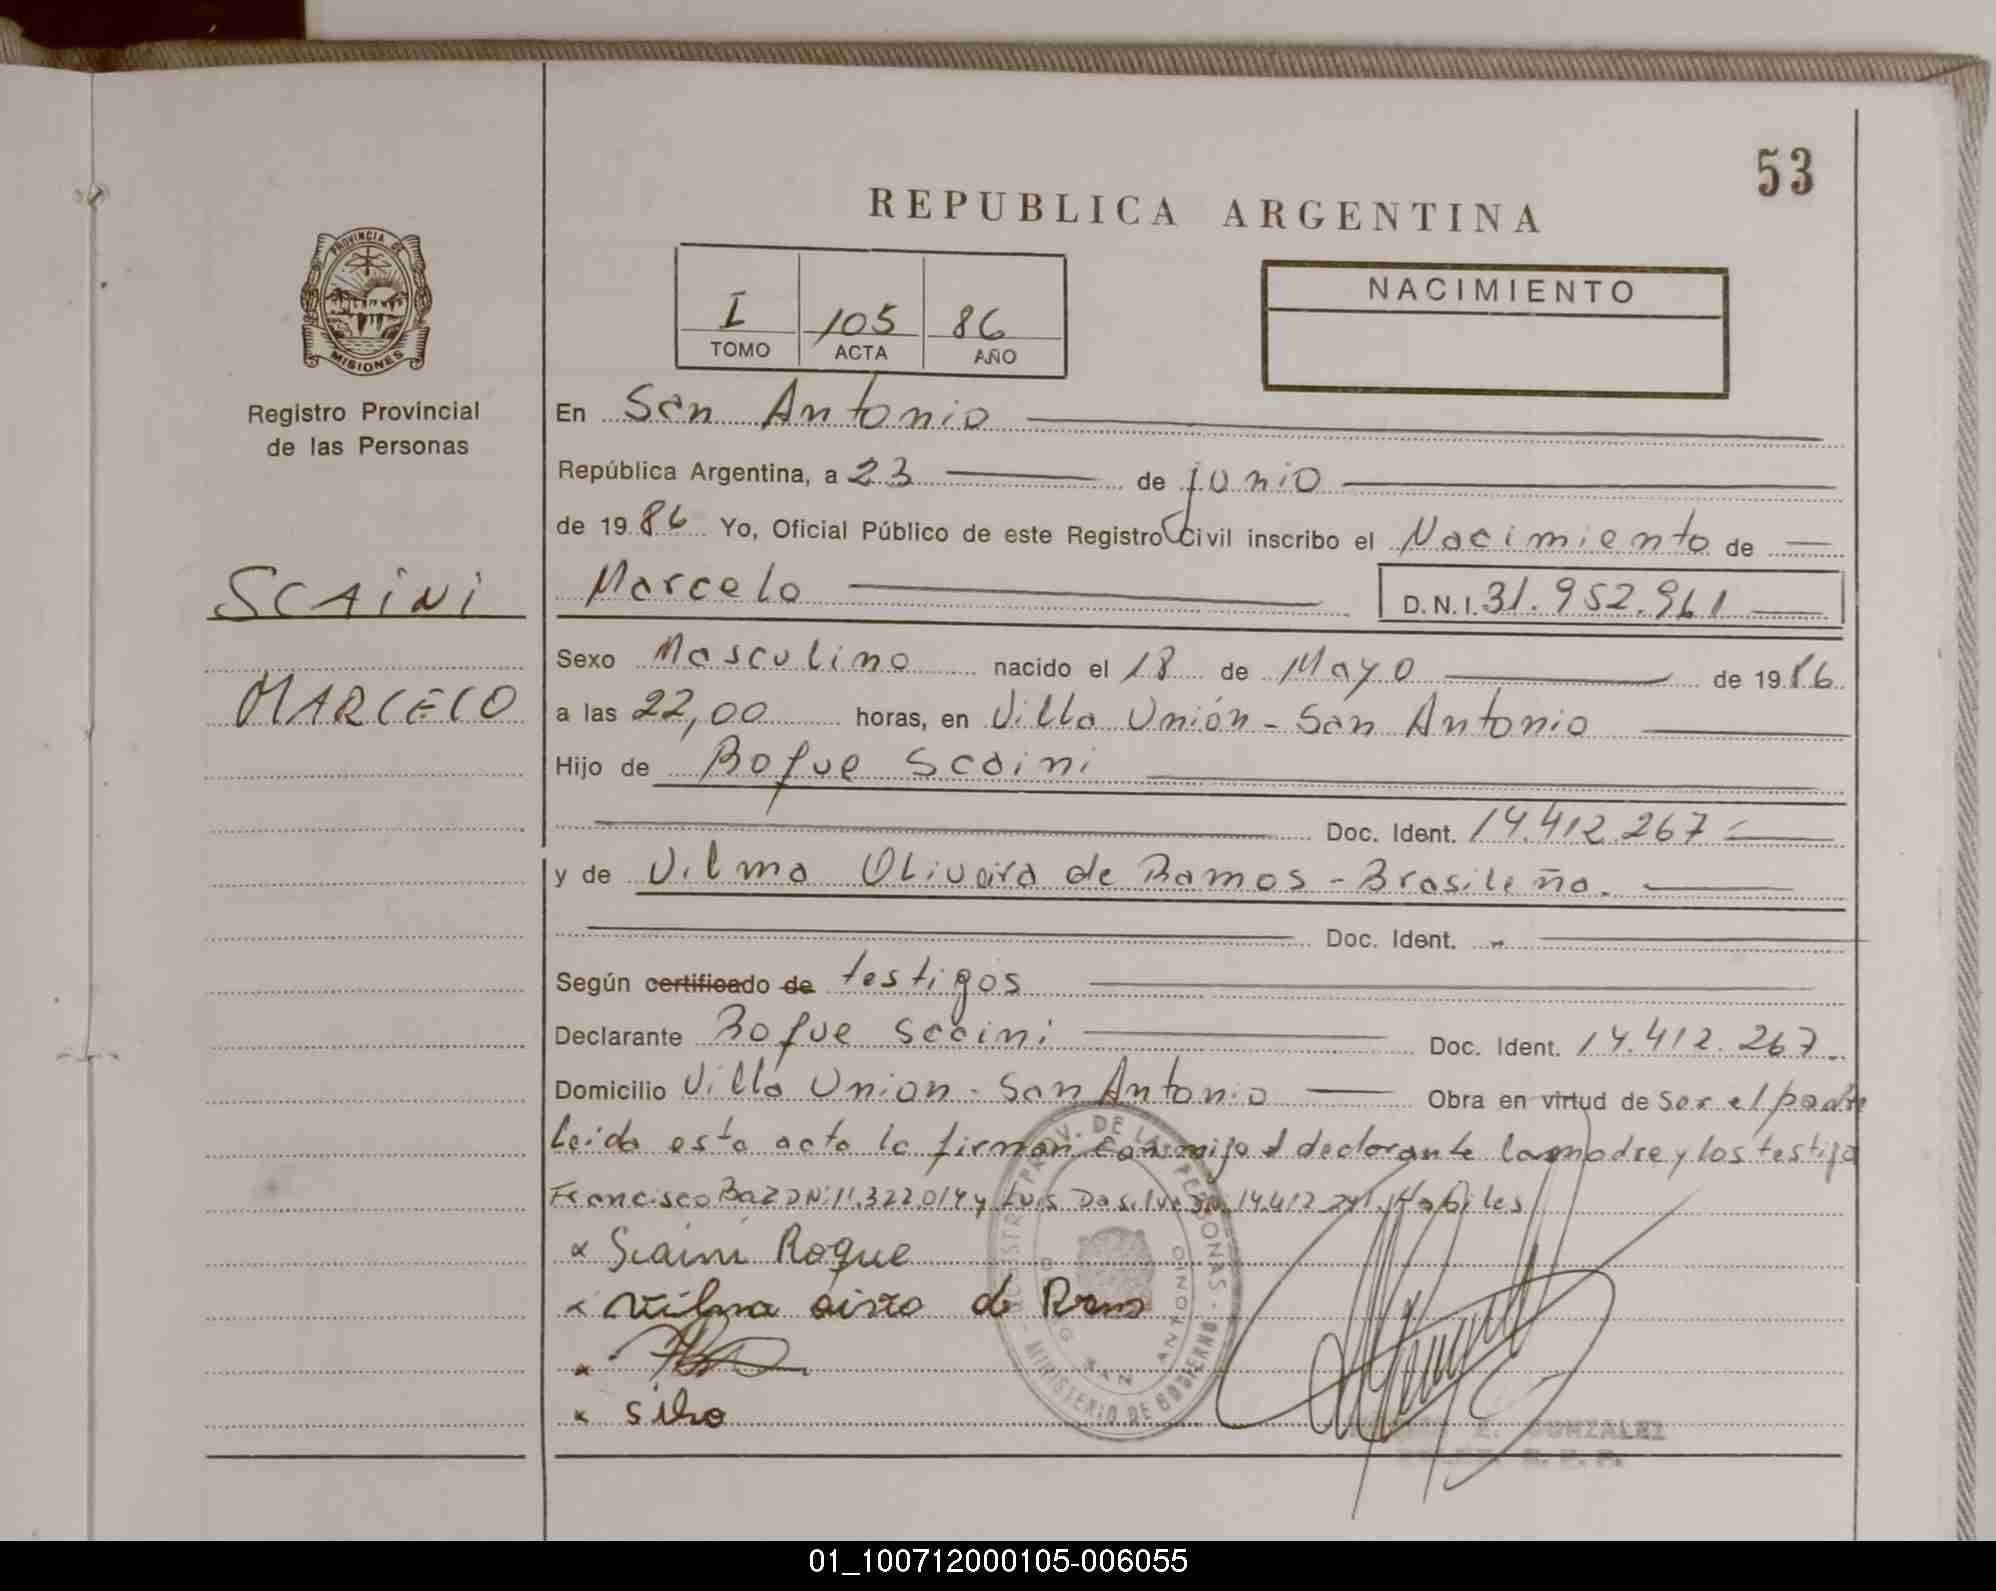 53
REPUBLICA ARGENTINA
PROVINCIA DE
MISIONES
Registro Provincial
de las Personas
I 105 86
TOMO ACTA AÑO
NACIMIENTO
SCAiNi
MARCELO
En San Antonio
República Argentina, a 23 de junio
de 1986 Yo, Oficial Público de este Registro Civil inscribo el Nacimiento de
Marcelo D.N.I. 31.952.961
Sexo Masculino nacido el 18 de Mayo de 1986
a las 22,00 horas, en Villa Unión - San Antonio
Hijo de Roque Scaini
Doc. Ident. 14.412.267
y de Vilma Oliveira de Ramos - Brasileña.
Doc. Ident. "
Según certificado de testigos
Declarante Roque Scaini Doc. Ident. 14.412.267
Domicilio Villa Union - San Antonio Obra en virtud de Ser el padre
Leida esta acta la firman conmigo el declarante la madre y los testigo
Francisco Baz DNI 11.322.014 y Luis Dasilva 14.412.241 Habiles
x Scaini Roque
x Vilma de Ramos
x
x Silva
REGISTRO PROV. DE LAS PERSONAS
SAN ANTONIO
MINISTERIO DE GOBIERNO
E. GONZALEZ
01_100712000105-006055